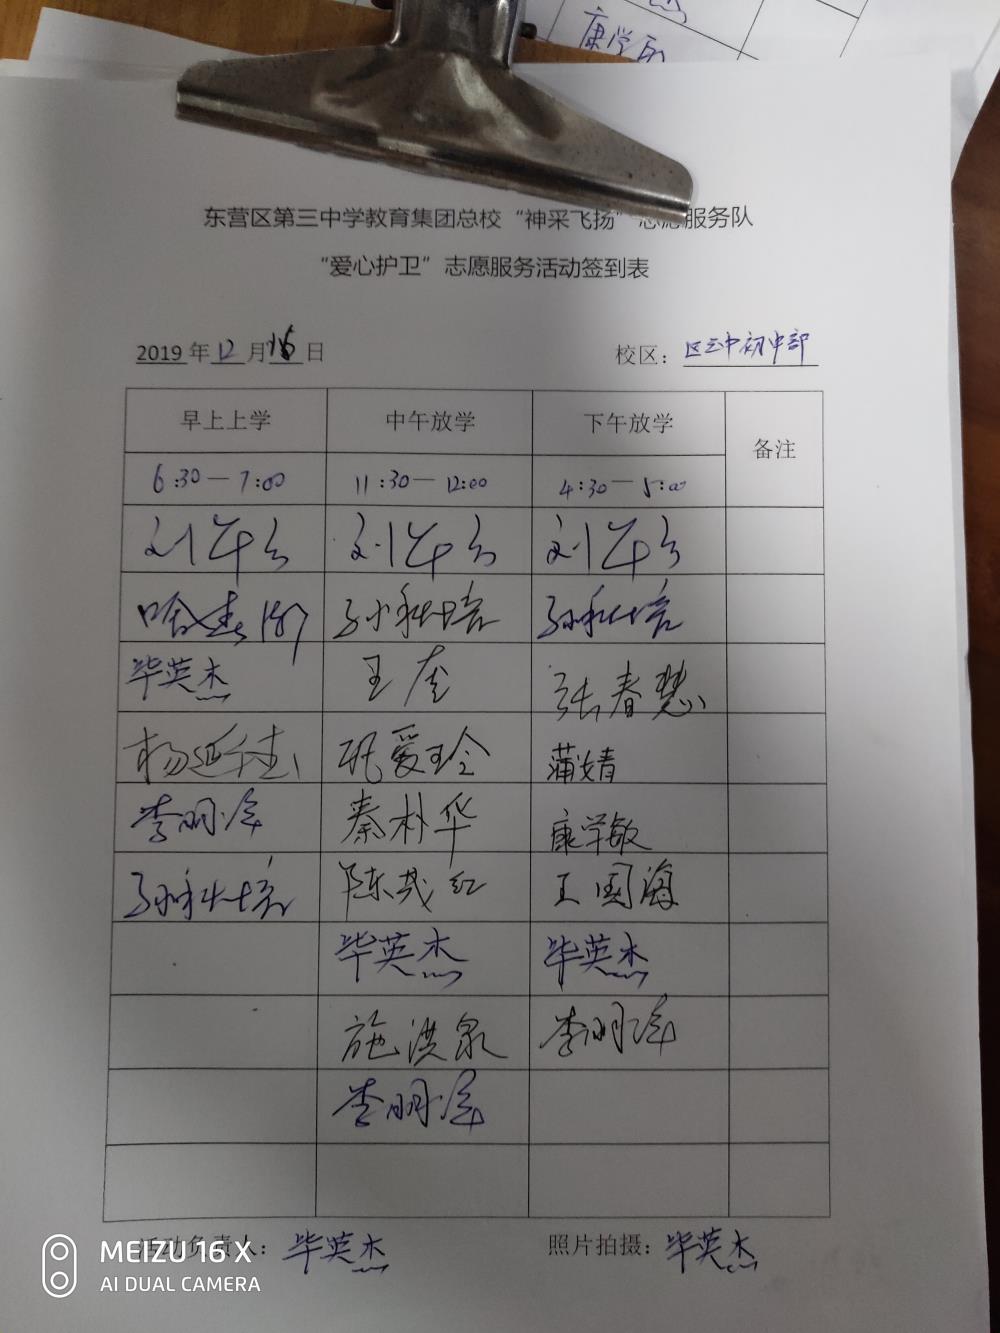 康学敏
东营区第三中学教育集团总校“神采飞扬”志愿服务队
“爱心护卫”志愿服务活动签到表
2019年12月16日 校区：区三中初中部
早上上学 中午放学 下午放学 备注
6:30—7:00 11:30—12:00 4:30—5:00
刘军 刘军 刘军
孙秋培 孙秋培
毕英杰 王奎 张春慧
杨延 巩爱玲 蒲婧
李明洋 秦朴华 康学敏
孙秋培 陈茂红 王国海
毕英杰 毕英杰
施洪泉 李明洋
李明洋
活动负责人：毕英杰 照片拍摄：毕英杰
MEIZU 16 X
AI DUAL CAMERA